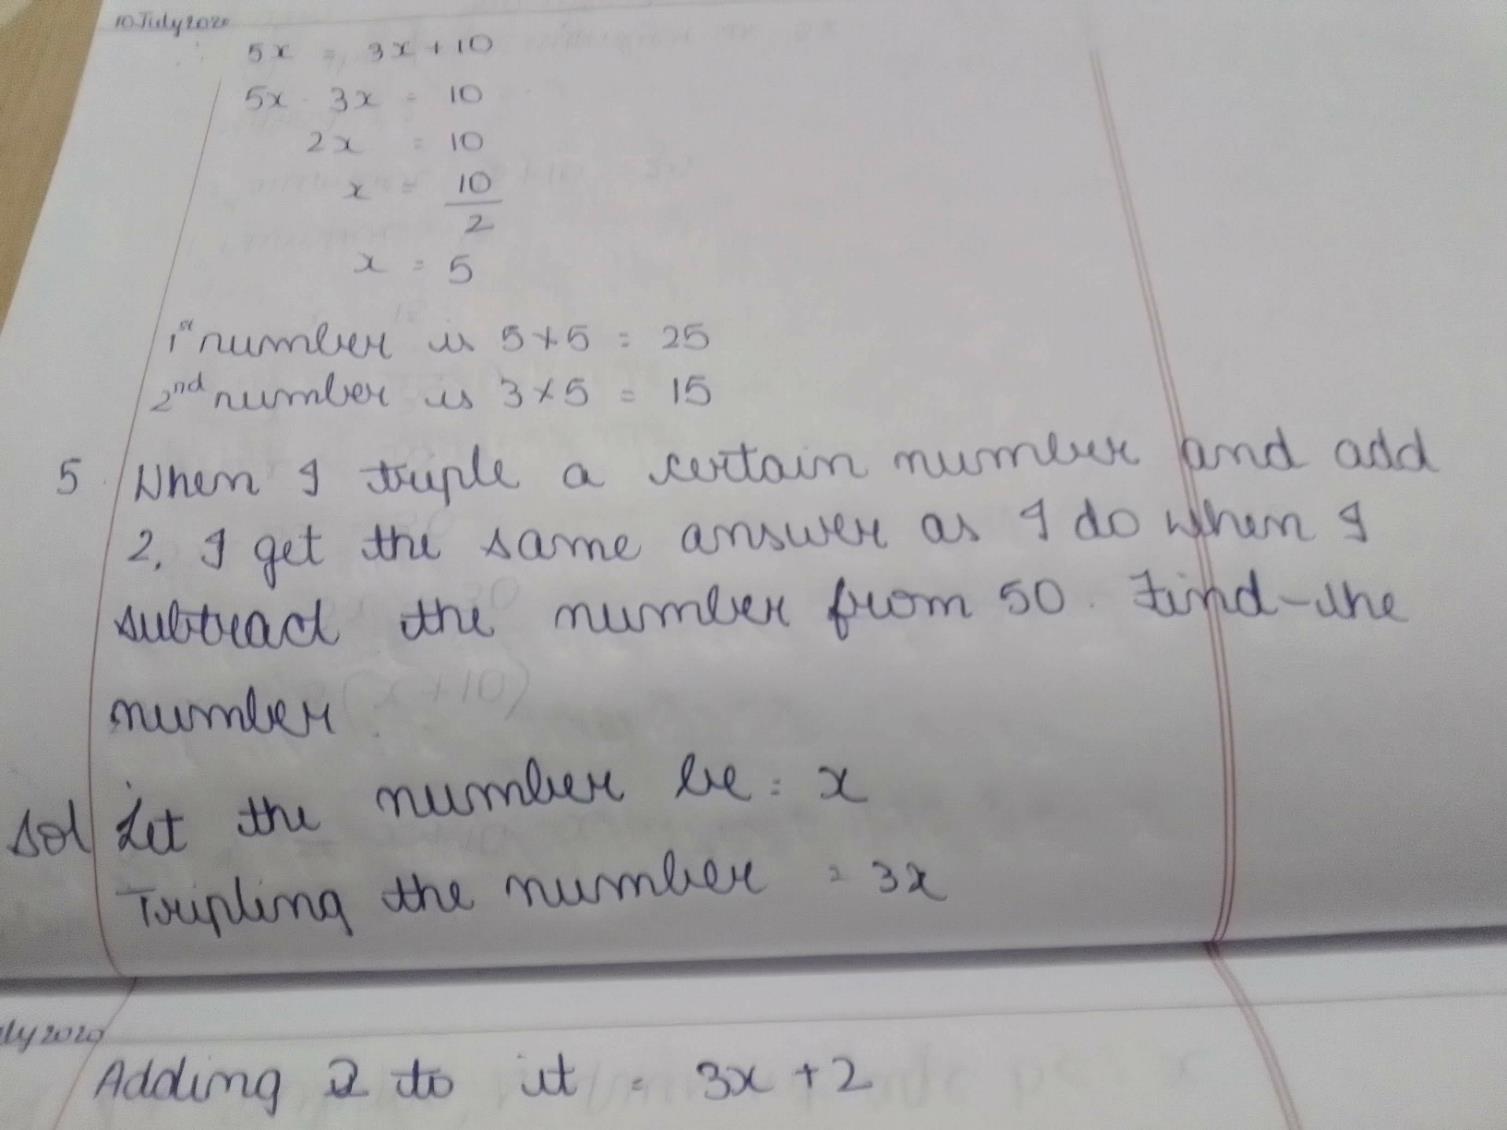 10 July 2020
5x = 3x + 10
5x - 3x = 10
2x = 10
x = 10
2
x = 5
1st number is 5 × 5 = 25
2nd number is 3 × 5 = 15
5 When I triple a certain number and add
2, I get the same answer as I do when I
subtract the number from 50. Find the
number.
Sol Let the number be = x
Tripling the number = 3x
ly 2020
Adding 2 to it = 3x + 2